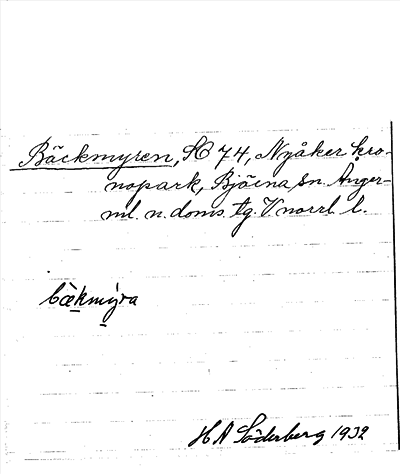 Bäckmyren, Æ 74, Nyåker kro-
nopark, Bjärna sn. Ånger-
ml. n. doms. tg. V norrl. l.
bækmýra
H A Söderberg 1932